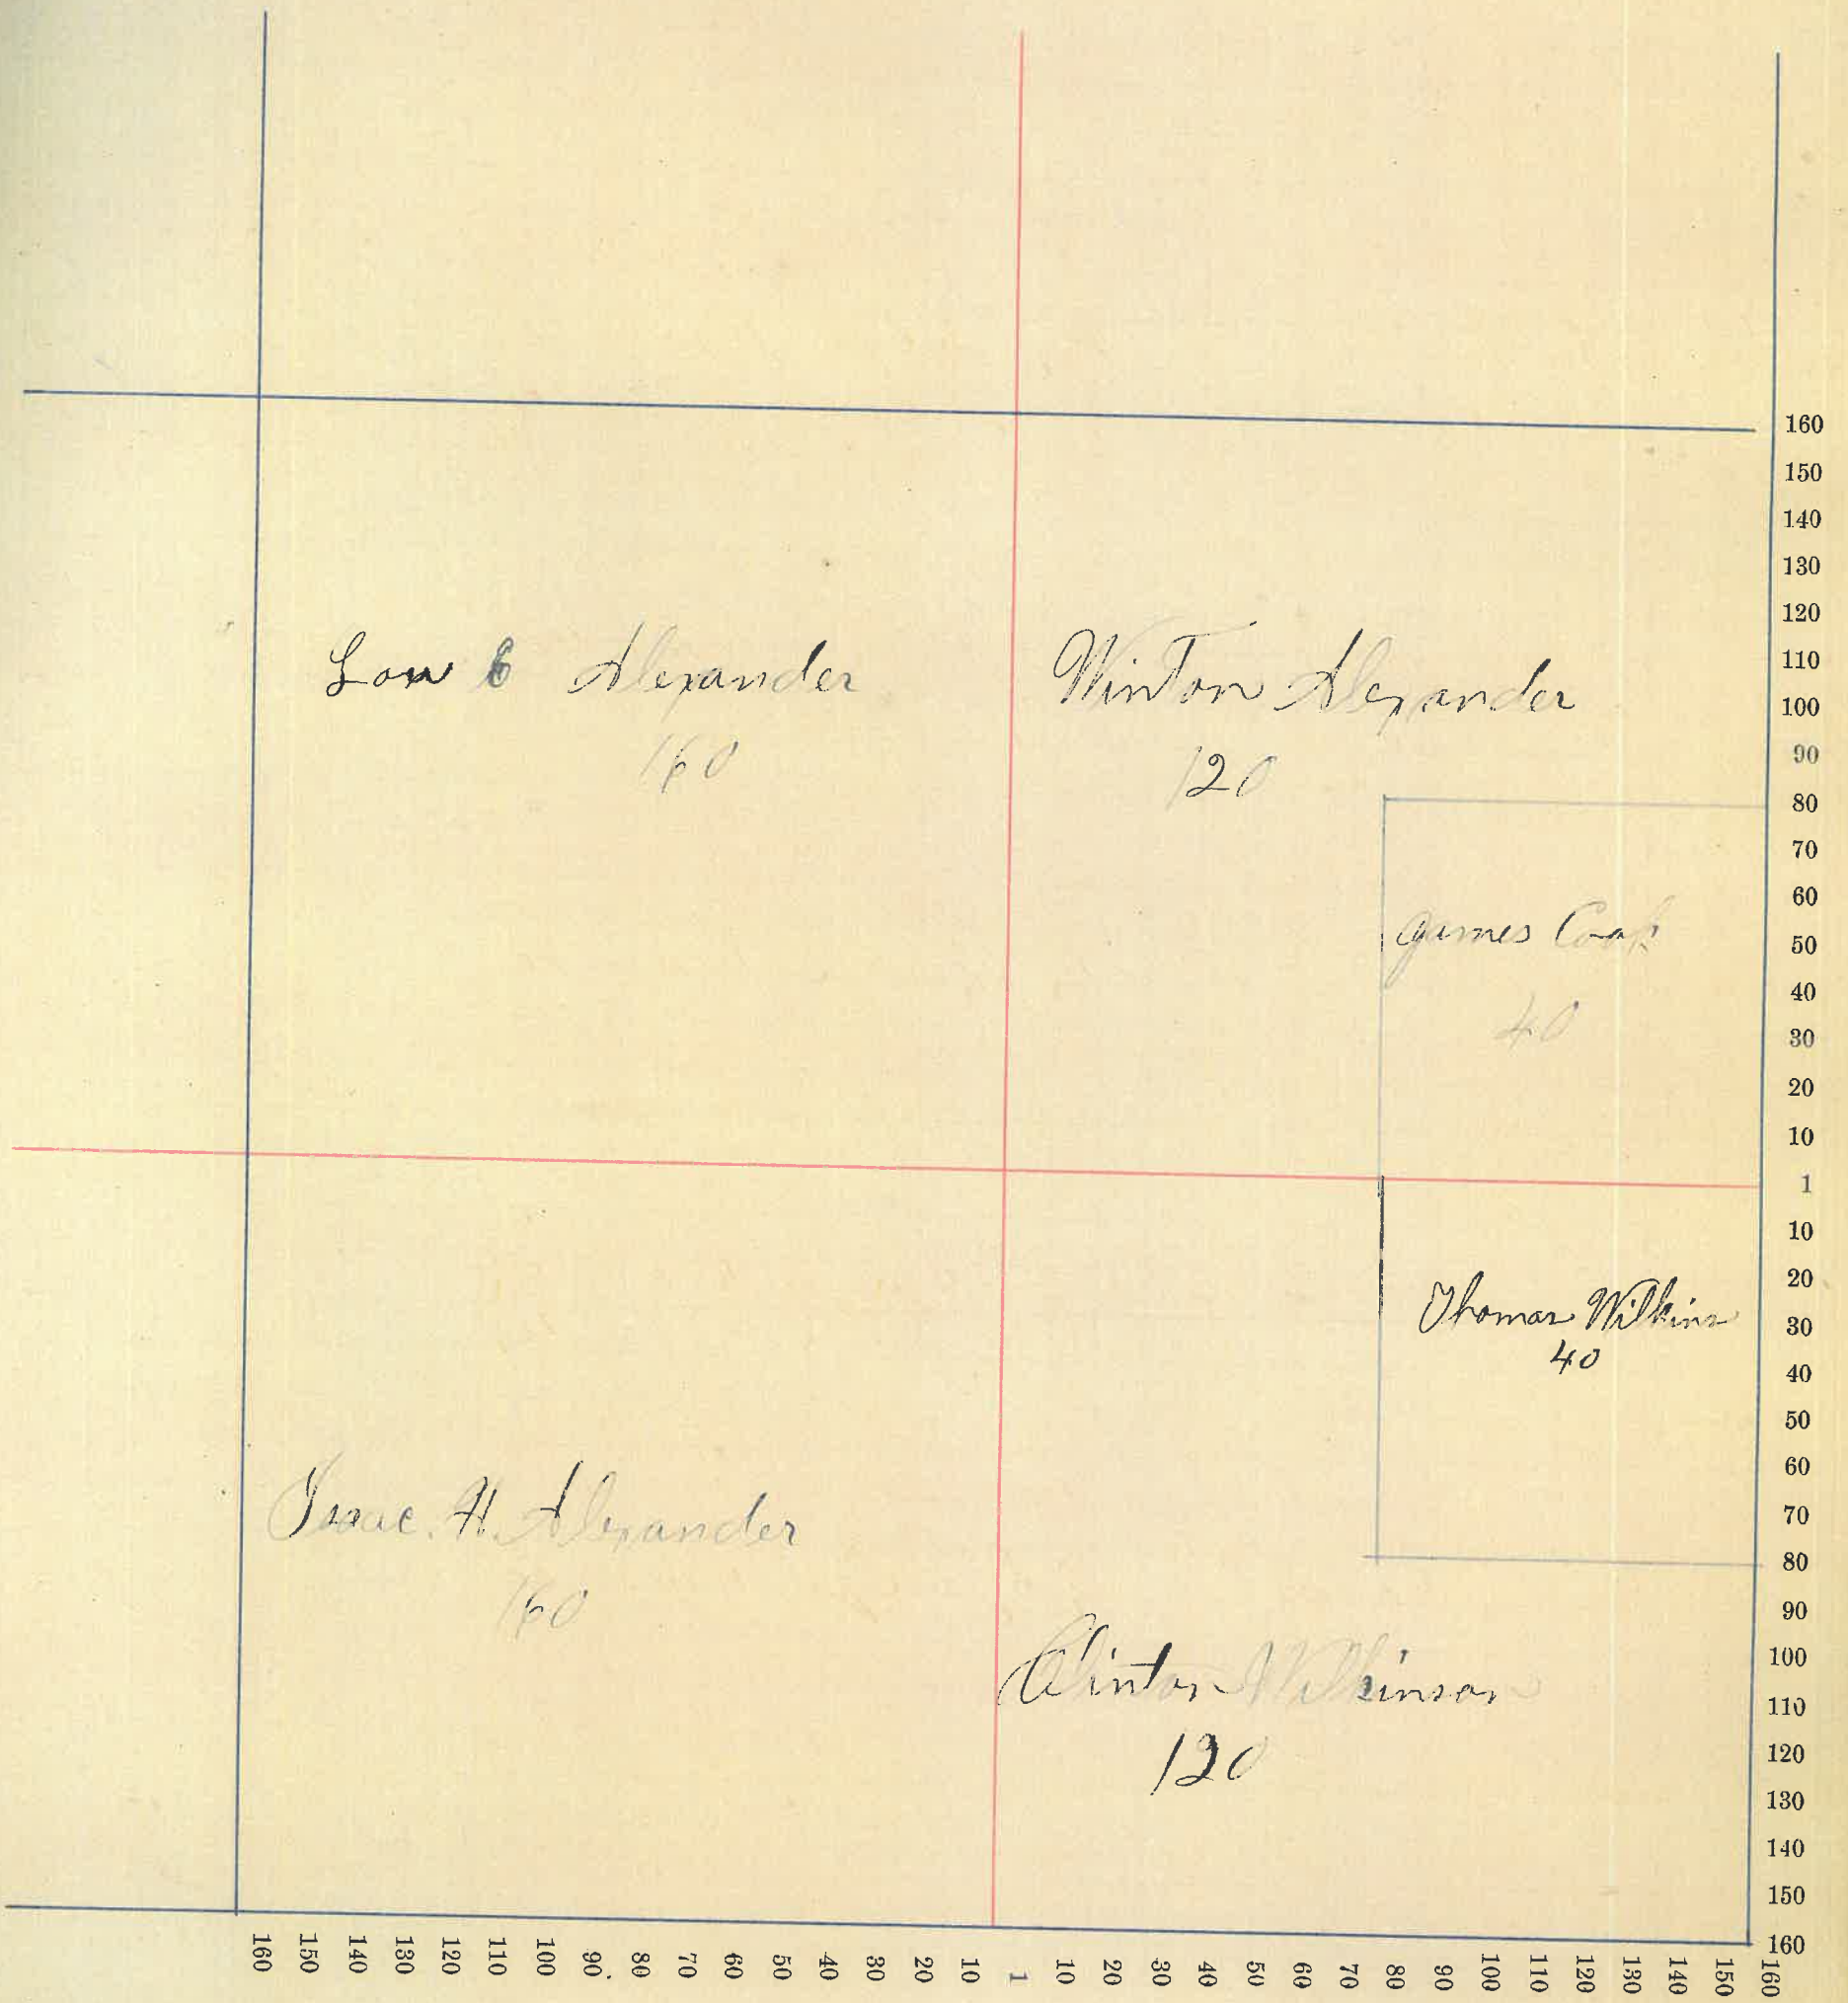 Low C Alexander
160
Winton Alexander
120
James Cook
40
Thomas Wilkins
40
Isaac. H. Alexander
160
Clinton Wilkinson
120
160
150
140
130
120
110
100
90
80
70
60
50
40
30
20
10
1
10
20
30
40
50
60
70
80
90
100
110
120
130
140
150
160
160 150 140 130 120 110 100 90. 80 70 60 50 40 30 20 10 1 10 20 30 40 50 60 70 80 90 100 110 120 130 140 150 160